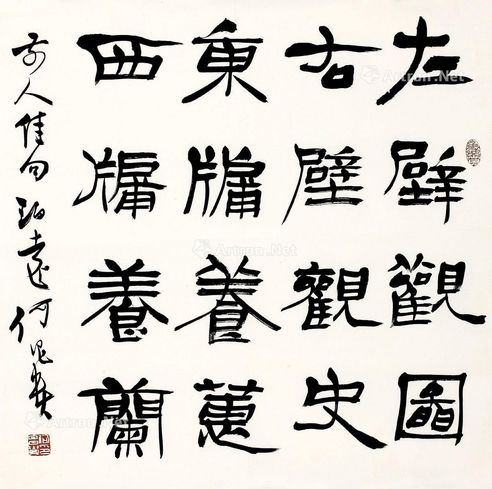 左壁觀圖
右壁觀史
東牖養蕙
西牖養蘭
前人佳句
Artron.Net
Artron.Net
Artron.Net
Artron.Net